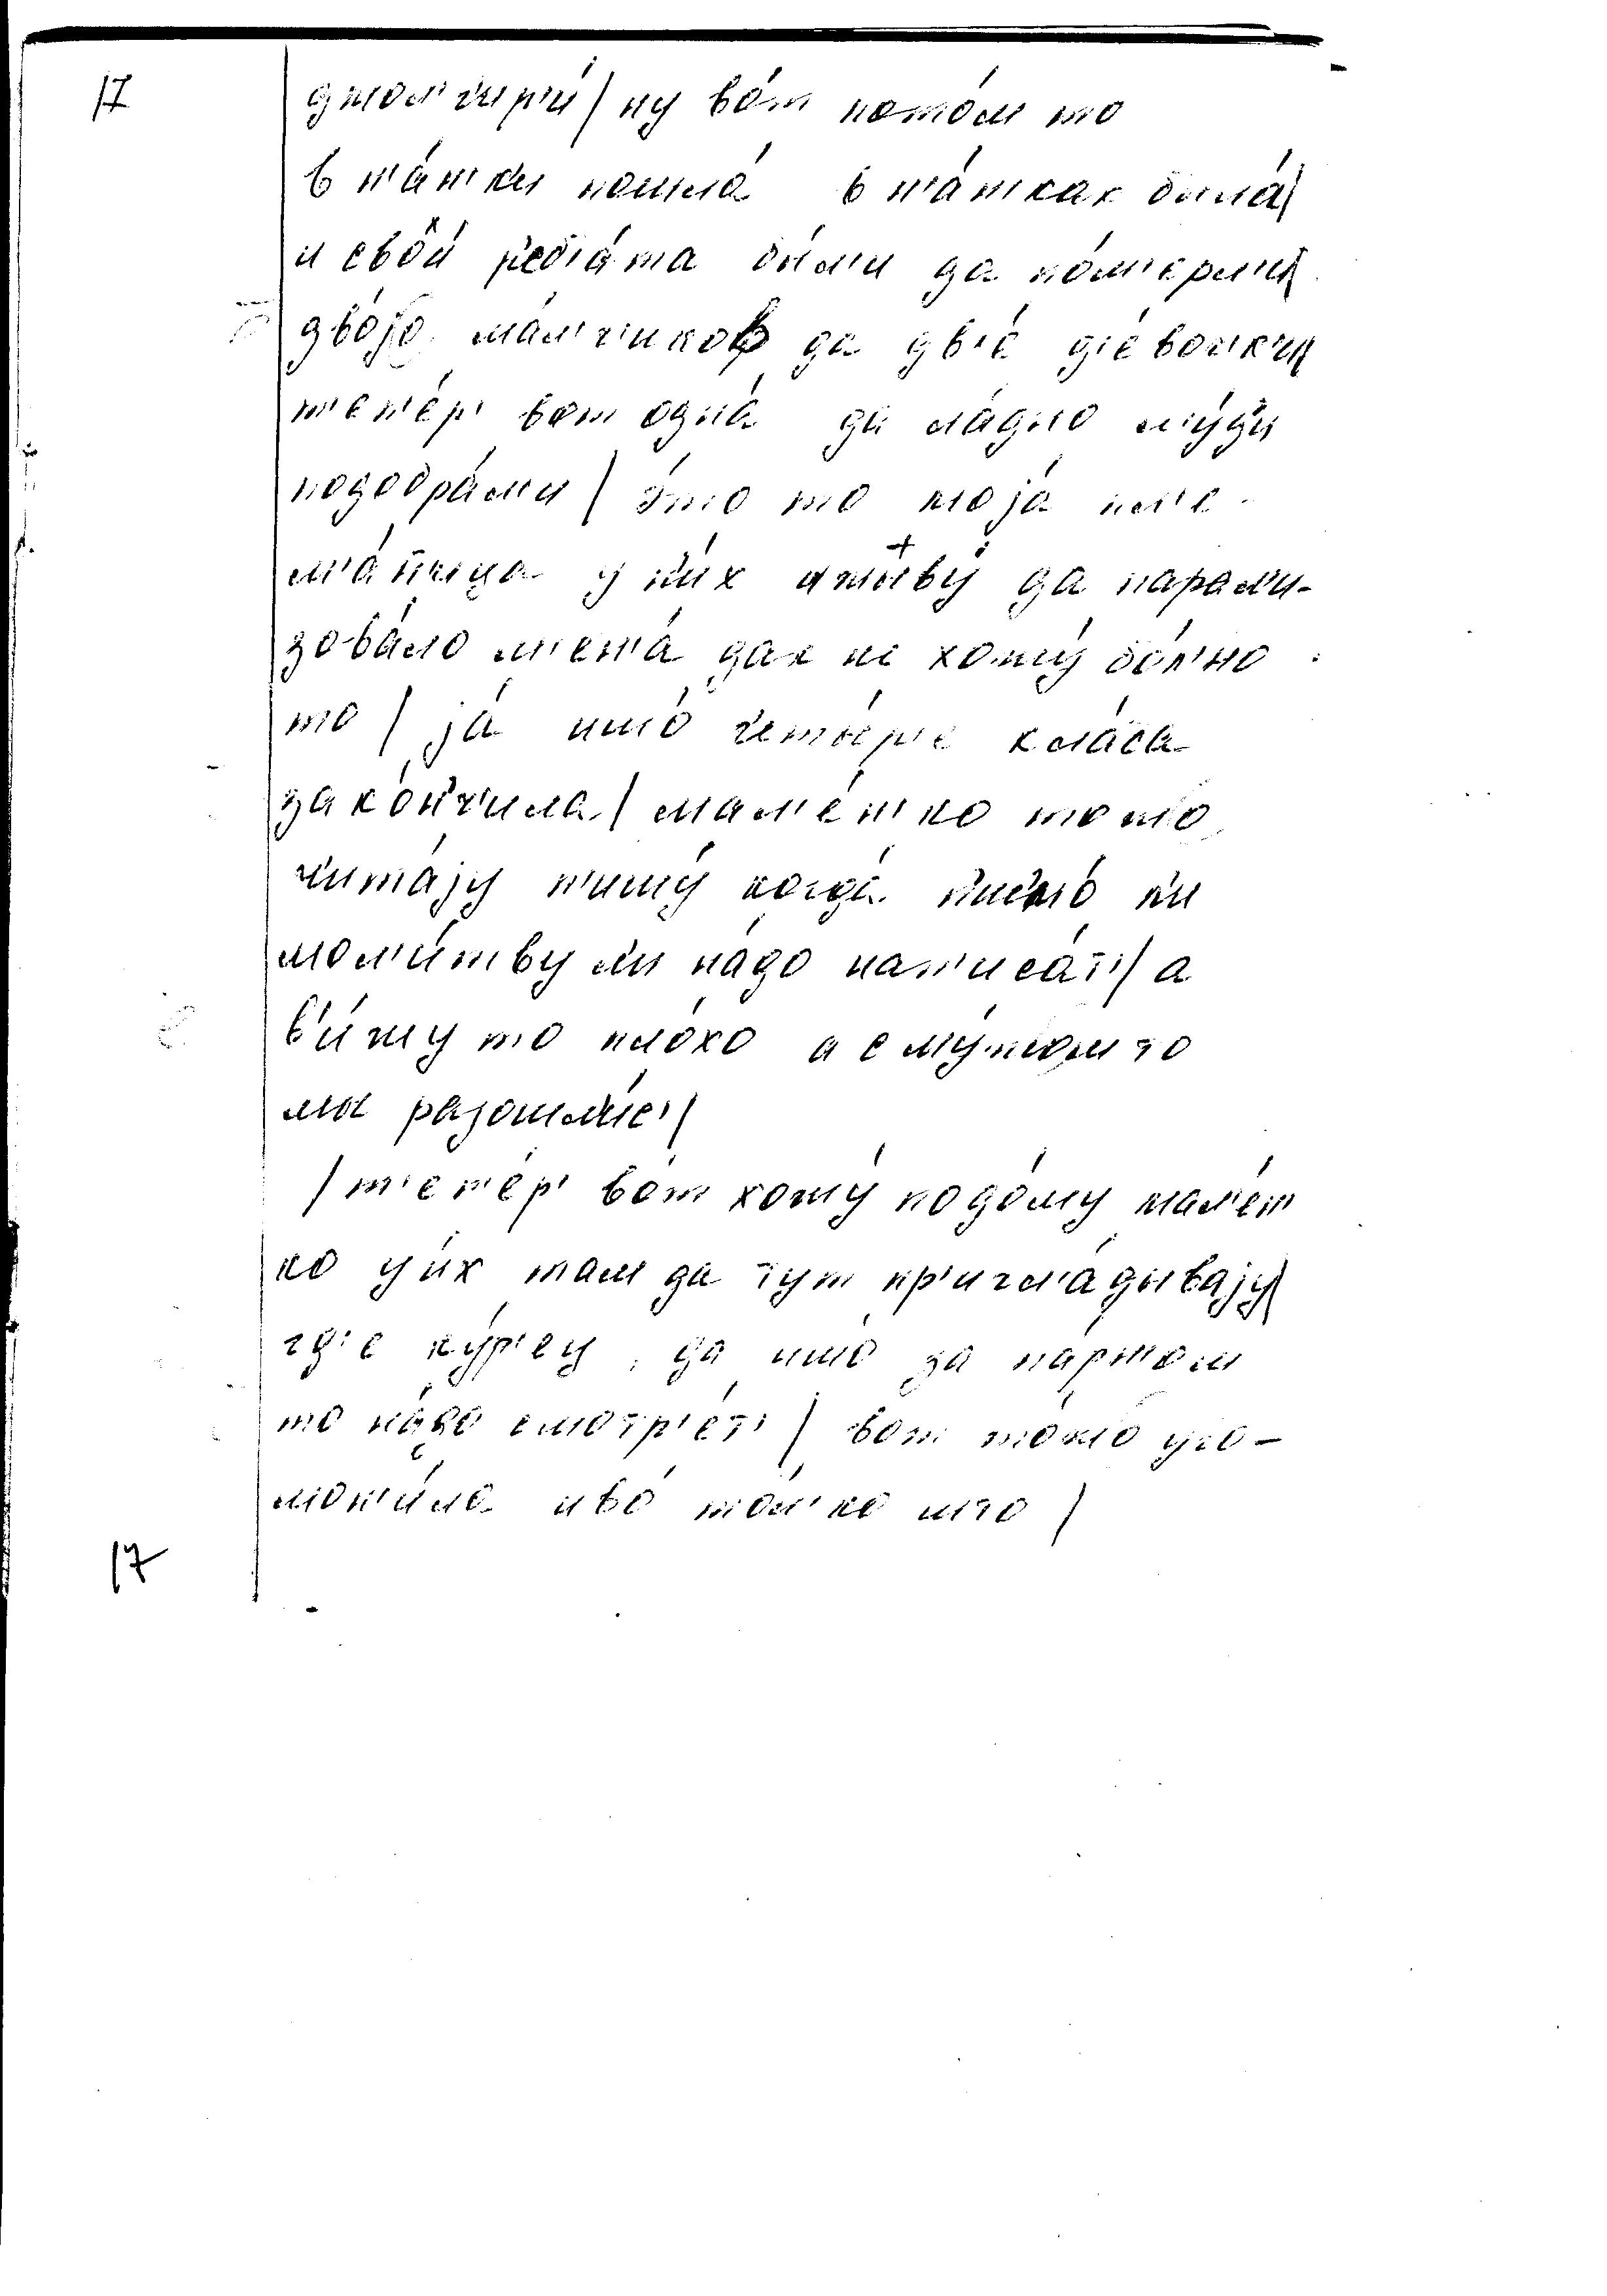 17
ну во́т пото́м то
в н'а́н'ки пошла́ в н'а́нках была́/
и свои́ р'еб'а́та бы́л'и да по́м'ерл'и/
дво́jо ма́л'ч'иков да дв'е́ д'е́вочк'и/
т'еп'е́р' вот одна́ да ла́дно л'у́ди
подобра́ли / э́то то моjа́ пл'е-
м'а́н'ица у н'и́х живу́ да парал'и-
зова́ло м'ен'а́ дак не хожу́ бо́л'но
то / jа́ ишо́ четы́р'е кла́са
зако́н'ч'ила / мал'е́н'ко то што
чита́jу п'ишу́ когда́ п'исмо́ л'и
мол'и́тву л'и на́до нап'иса́т'/ а
в'и́жу то пло́хо а с му́жом то
мы разошли́с'/
/ т'еп'е́р' вот хожу́ по до́му мал'е́н'
ко у и́х там да тут пр'игл'а́дываjу/
гд'е ку́р'ец, да ишо́ за па́рн'ом
то на́до смотр'е́т' / вот то́л'ко уго-
мон'и́ла иво́ то́л'ко што /
17